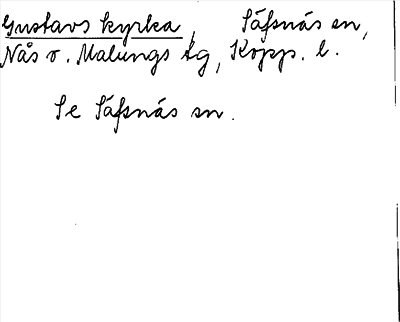 Gustavs kyrka, Säfsnäs sn,
Nås o. Malungs tg, Kopp. l.
Se Säfsnäs sn.